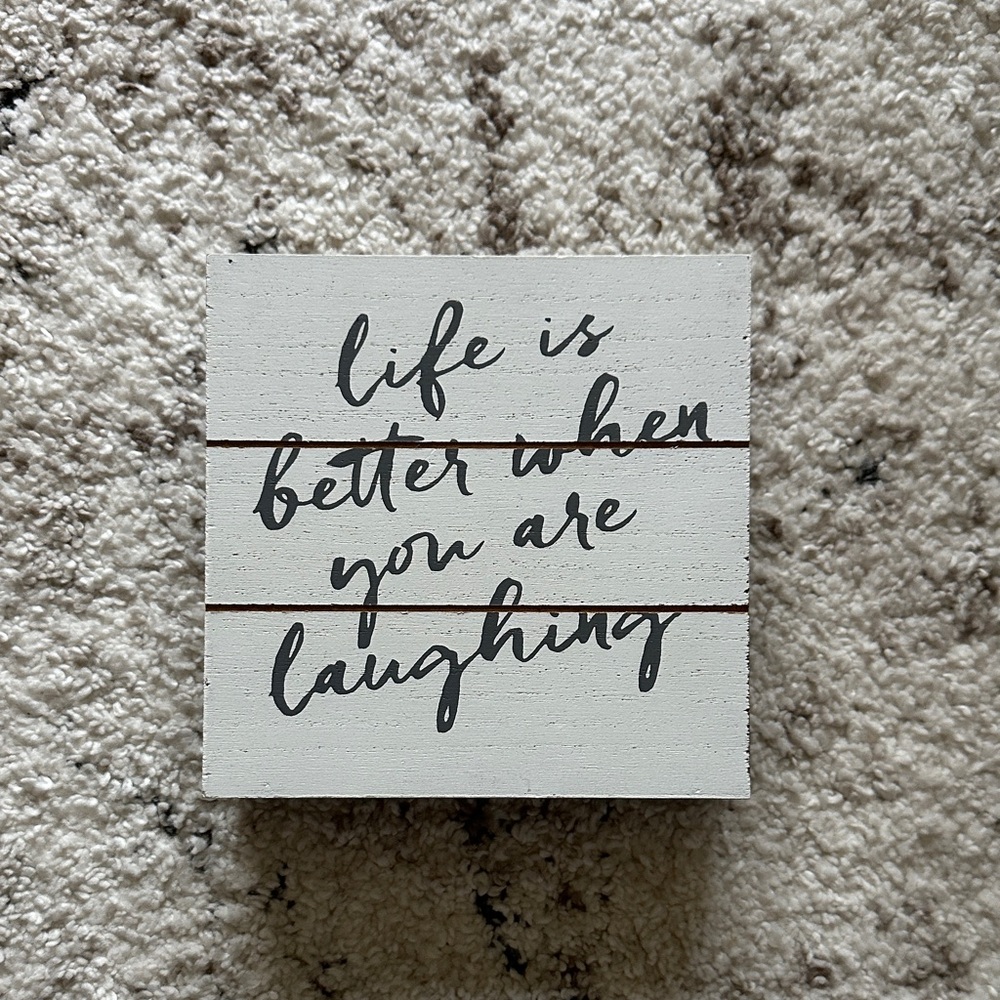 life is
better when
you are
laughing